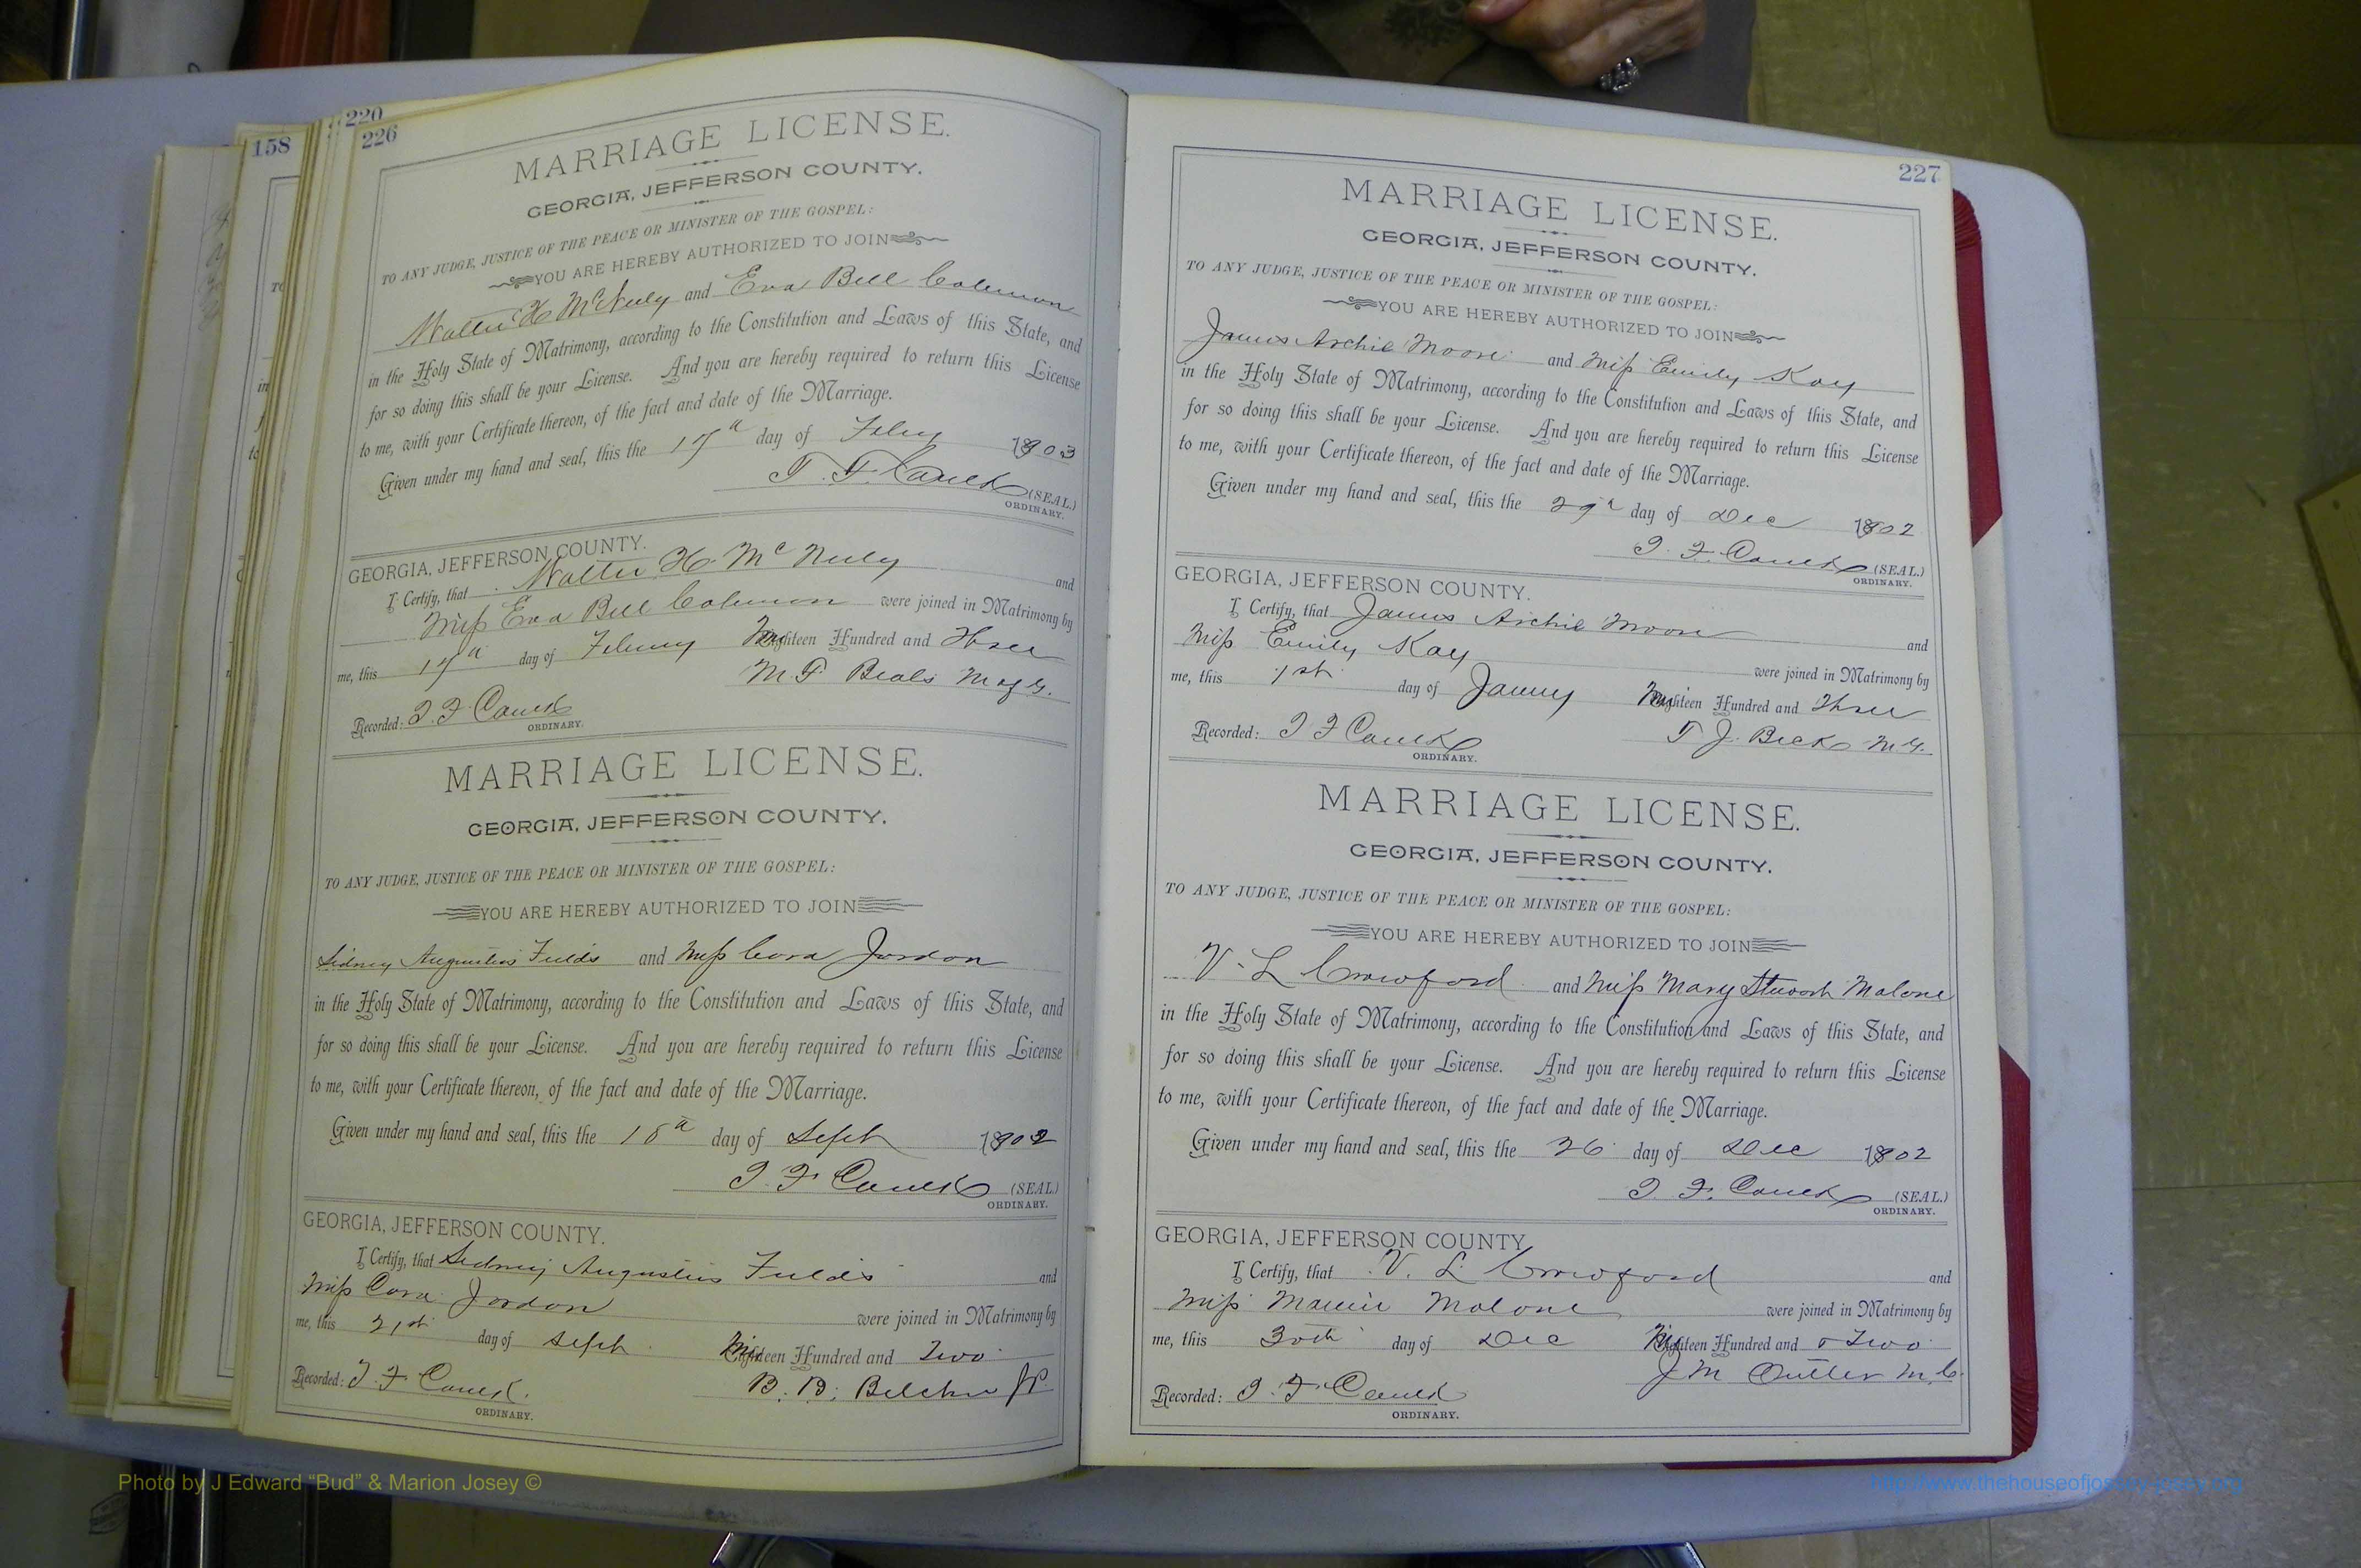 158
220
226
MARRIAGE LICENSE.
GEORGIA, JEFFERSON COUNTY.
TO ANY JUDGE, JUSTICE OF THE PEACE OR MINISTER OF THE GOSPEL:
YOU ARE HEREBY AUTHORIZED TO JOIN
Walter H McNeely and Eva Bell Coleman
in the Holy State of Matrimony, according to the Constitution and Laws of this State, and
for so doing this shall be your License. And you are hereby required to return this License
to me, with your Certificate thereon, of the fact and date of the Marriage.
Given under my hand and seal, this the 17th day of Feby 1903
(SEAL.)
ORDINARY.
GEORGIA, JEFFERSON COUNTY.
I Certify, that Walter H. McNeely and
Miss Eva Bell Coleman were joined in Matrimony by
me, this 17th day of Hundred and Three
M. F. Beals
Recorded:
ORDINARY.
MARRIAGE LICENSE.
GEORGIA, JEFFERSON COUNTY.
TO ANY JUDGE, JUSTICE OF THE PEACE OR MINISTER OF THE GOSPEL:
YOU ARE HEREBY AUTHORIZED TO JOIN
Sidney Augustus Fields and Miss Cora Jordon
in the Holy State of Matrimony, according to the Constitution and Laws of this State, and
for so doing this shall be your License. And you are hereby required to return this License
to me, with your Certificate thereon, of the fact and date of the Marriage.
Given under my hand and seal, this the day of Sept 1902
(SEAL.)
ORDINARY.
GEORGIA, JEFFERSON COUNTY.
I Certify, that Sidney Augustus Fields and
Miss Cora Jordon were joined in Matrimony by
me, this 21st day of Sept Hundred and Two
B. B. Belcher JP
Recorded:
ORDINARY.
227
MARRIAGE LICENSE.
GEORGIA, JEFFERSON COUNTY.
TO ANY JUDGE, JUSTICE OF THE PEACE OR MINISTER OF THE GOSPEL:
YOU ARE HEREBY AUTHORIZED TO JOIN
James Archie Moore and Miss Emily Kay
in the Holy State of Matrimony, according to the Constitution and Laws of this State, and
for so doing this shall be your License. And you are hereby required to return this License
to me, with your Certificate thereon, of the fact and date of the Marriage.
Given under my hand and seal, this the 29th day of Dec 1902
(SEAL.)
ORDINARY.
GEORGIA, JEFFERSON COUNTY.
I Certify, that James Archie Moore and
Miss Emily Kay were joined in Matrimony by
me, this 1st day of Hundred and Three
T J. Beck M.G.
Recorded:
ORDINARY.
MARRIAGE LICENSE.
GEORGIA, JEFFERSON COUNTY.
TO ANY JUDGE, JUSTICE OF THE PEACE OR MINISTER OF THE GOSPEL:
YOU ARE HEREBY AUTHORIZED TO JOIN
V. L Crawford and Miss Mary Malone
in the Holy State of Matrimony, according to the Constitution and Laws of this State, and
for so doing this shall be your License. And you are hereby required to return this License
to me, with your Certificate thereon, of the fact and date of the Marriage.
Given under my hand and seal, this the 26 day of Dec 1902
(SEAL.)
ORDINARY.
GEORGIA, JEFFERSON COUNTY
I Certify, that V. L Crawford and
Miss Malone were joined in Matrimony by
me, this 30th day of Dec Hundred and Two
J M
Recorded:
ORDINARY.
Photo by J Edward “Bud” & Marion Josey ©